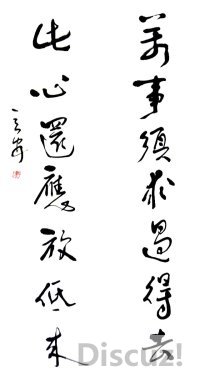 萬事須求過得去
此心還應放低來
Discuz!